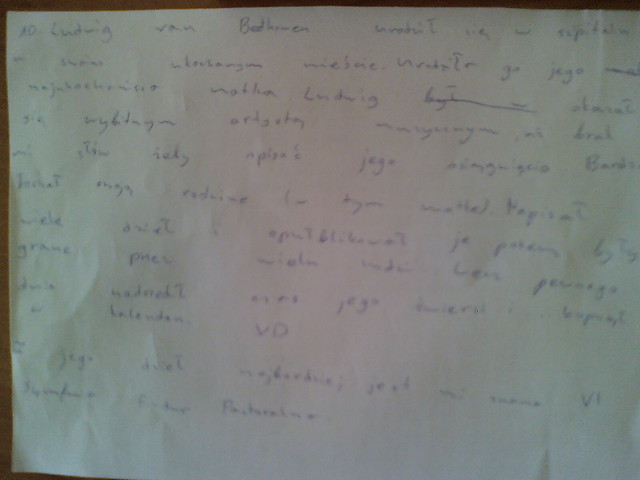 10. Ludwig van Beethoven urodził się w szpitalu
w swoim ukochanym mieście. Urodziła go jego
najukochańsza matka Ludwig był okazał
się wybitnym artystą muzycznym, aż brak
mi słów żeby opisać jego osiągnięcia Bardzo
kochał swoją rodzinę (w tym matkę). Napisał
wiele dzieł i opublikował je potem były
grane przez wielu ludzi Lecz pewnego
dnia nadszedł czas jego śmierci i kopnął
w kalendarz.
Z jego dzieł najbardziej jest mi znana VI
Symfonia Pastoralna.